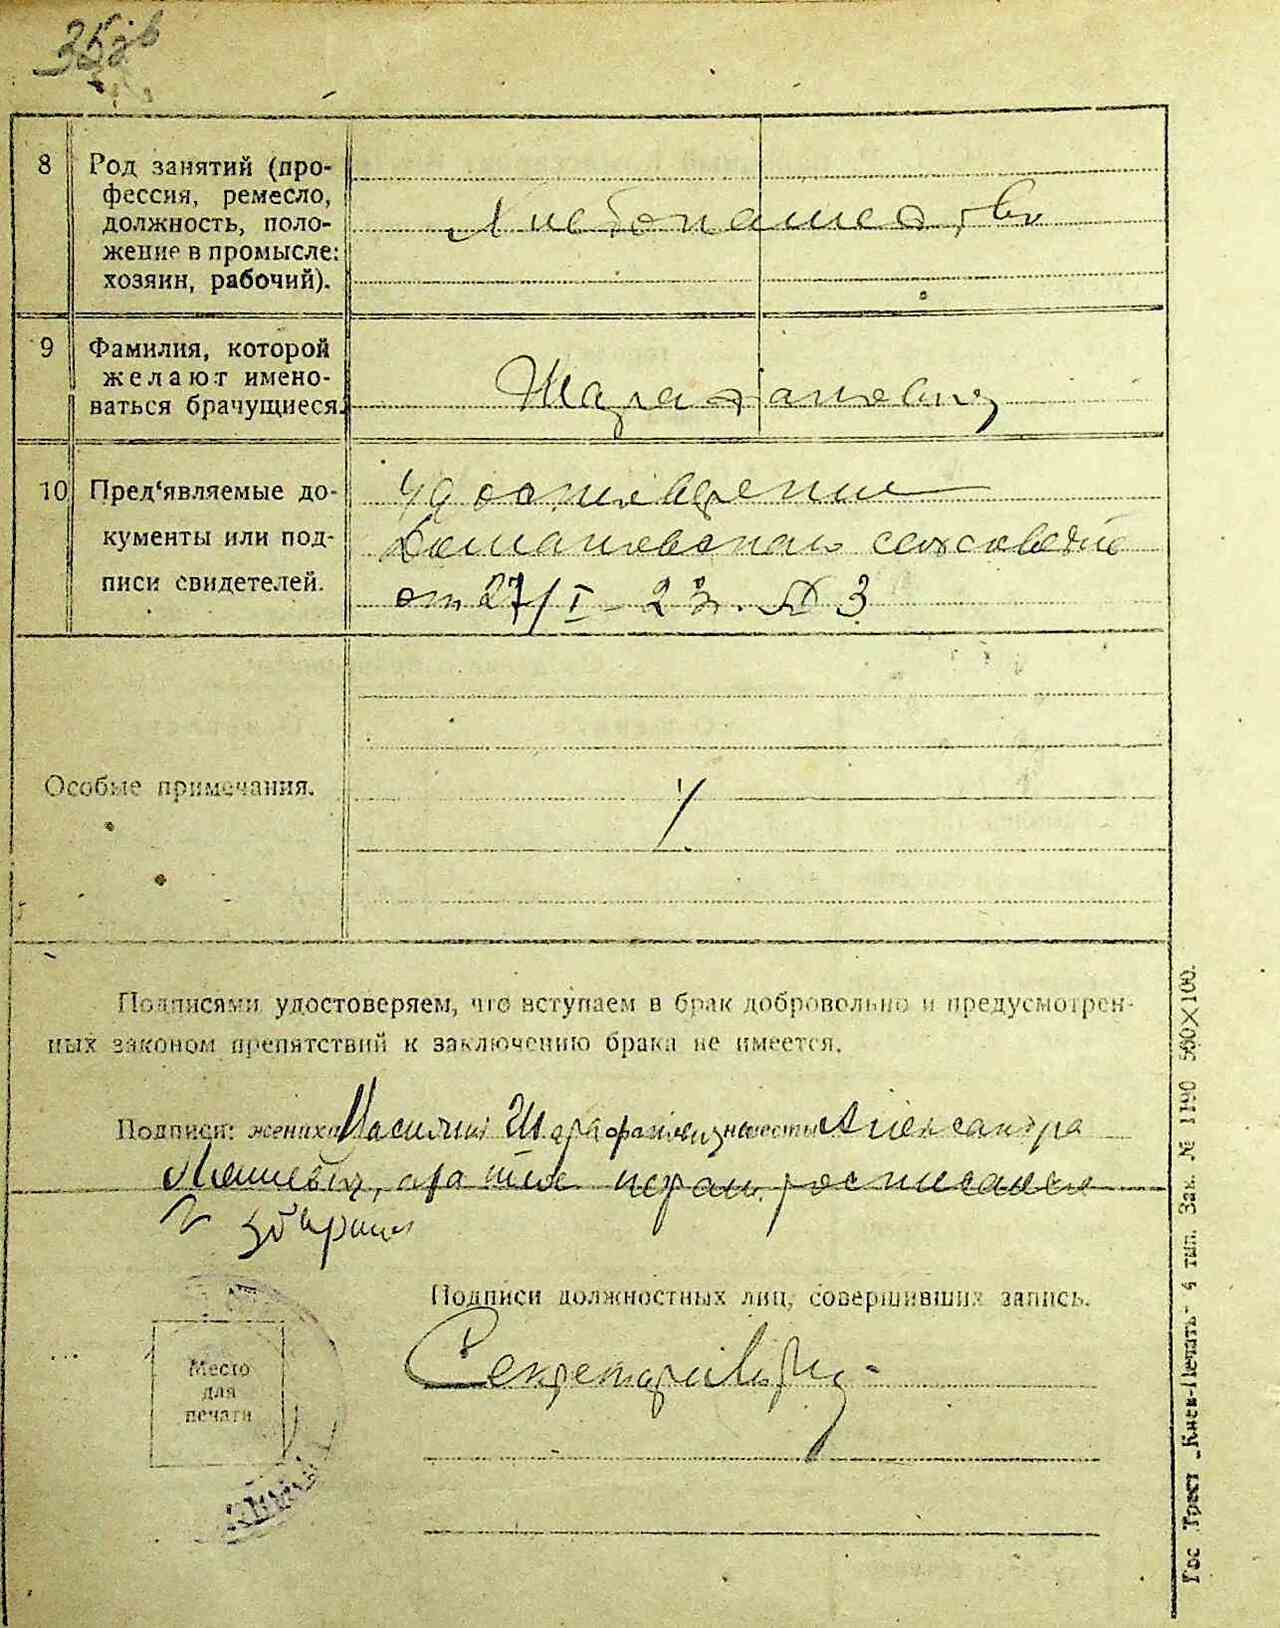 8 Род занятий (про-
фессия, ремесло,
должность, поло-
жение в промысле:
хозяин, рабочий).
Хлебопашество
9 Фамилия, которой
желают имено-
ваться брачущиеся.
10 Пред‘являемые до-
кументы или под-
писи свидетелей.
удостоверение
сельсовета
от 27/I – 23 г. № 3
Особые примечания.
Подписями удостоверяем, что вступаем в брак добровольно и предусмотрен-
ных законом препятствий к заключению брака не имеется.
Подписи: жениха Василий невесты Александра
Подписи должностных лиц, совершивших запись.
Секретарь
Место
для
печати
Гос Трест „Киев-Печать“ 4 тип. Зак. № 1190 500×100.